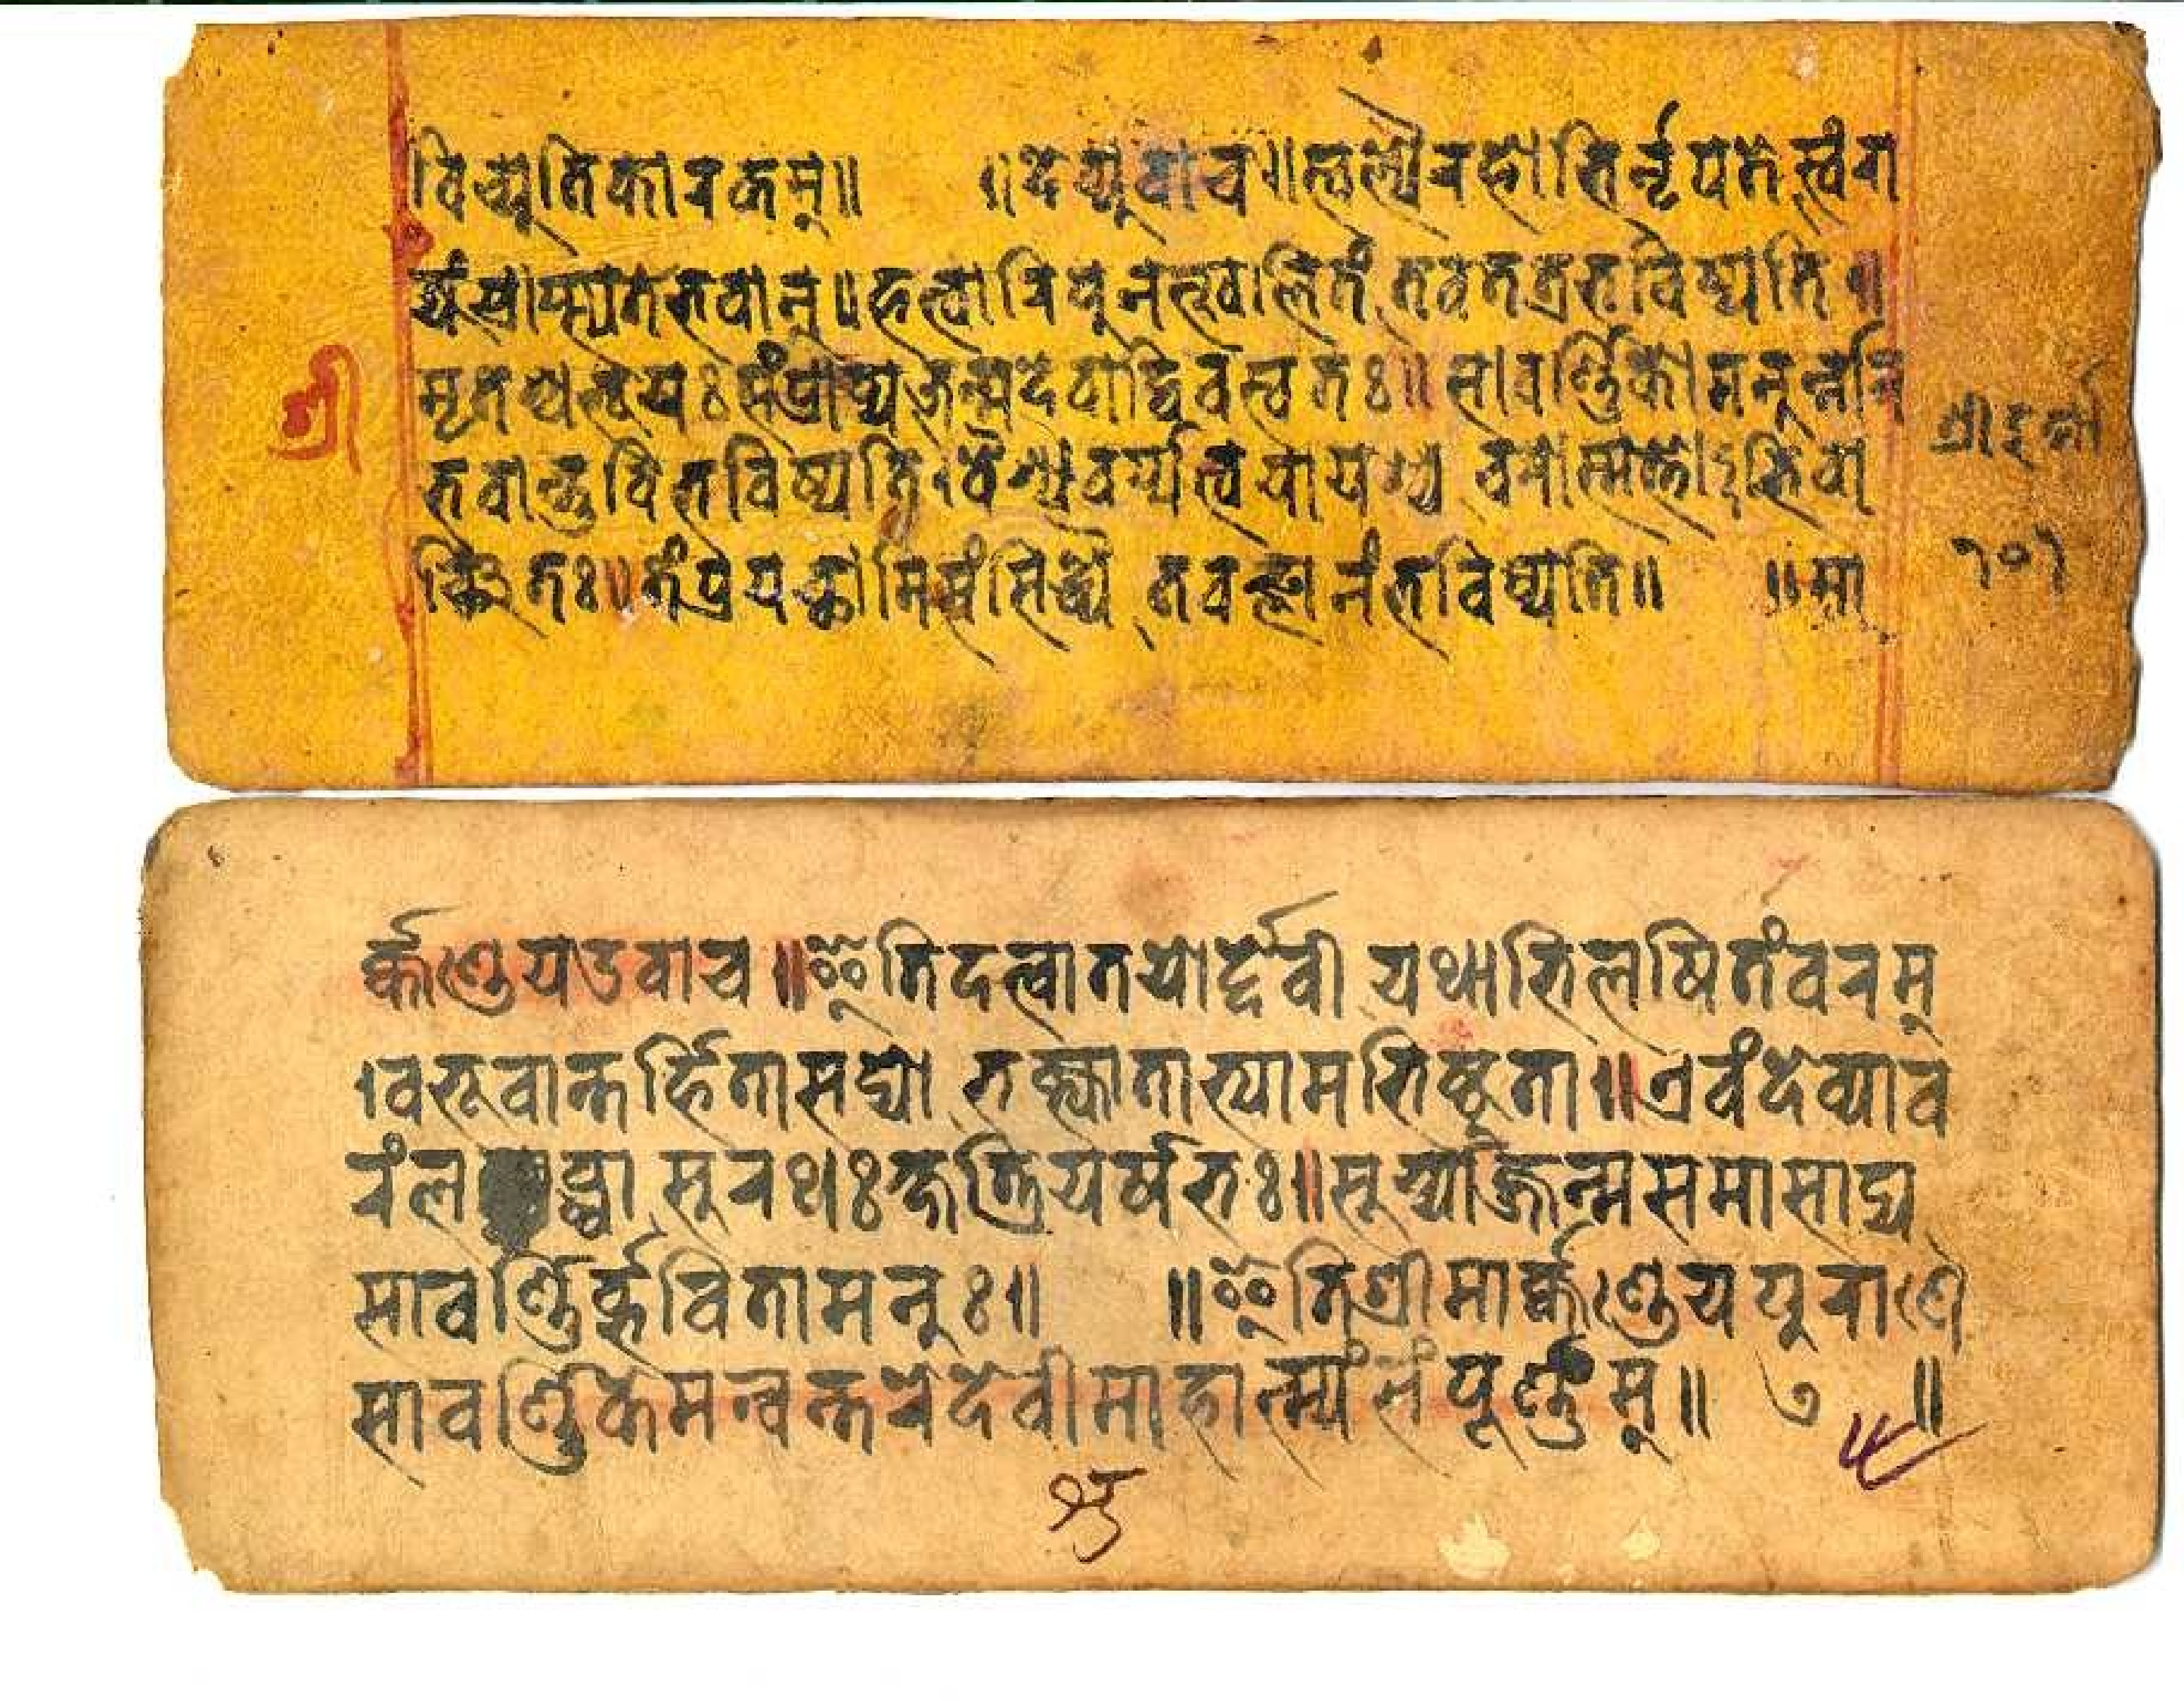 विच्युतिकारकम्॥ ॥देव्युवाच॥स्वल्पैरहोभिर्नृपतेस्वंरा
ज्यंप्राप्स्यतेभवान्॥हत्वारिपूनस्खलितं तवतत्रभविष्यति॥
श्री
मृतश्चभूयःसंप्राप्यजन्मदेवाद्विवस्वतः॥सावर्ण्णिकोमनुर्न्नाम
भवान्भुविभविष्यति।वैश्यवर्य्यत्वयायश्च वरोस्मत्तोऽभिवा
श्रीदुर्गा
ञ्छितः॥तंप्रयच्छामिसंसिद्ध्यै तवज्ञानंभविष्यति॥ ॥मा
१०१
र्क्कण्डेयउवाच॥इतिदत्वातयोर्द्देवी यथाभिलषितंवरम्
।वभूवान्तर्हितासद्यो भक्त्याताभ्यामभिष्टुता॥एवंदेव्याव
रंलब्ध्वा सुरथःक्षत्रियर्षभः॥सूर्य्याज्जन्मसमासाद्य
सावर्ण्णिर्भवितामनुः॥ ॥इतिश्रीमार्क्कण्डेयपुराणे
सावर्ण्णिकेमन्वन्तरेदेवीमाहात्म्यंसंपूर्ण्णम्॥ ७ ॥